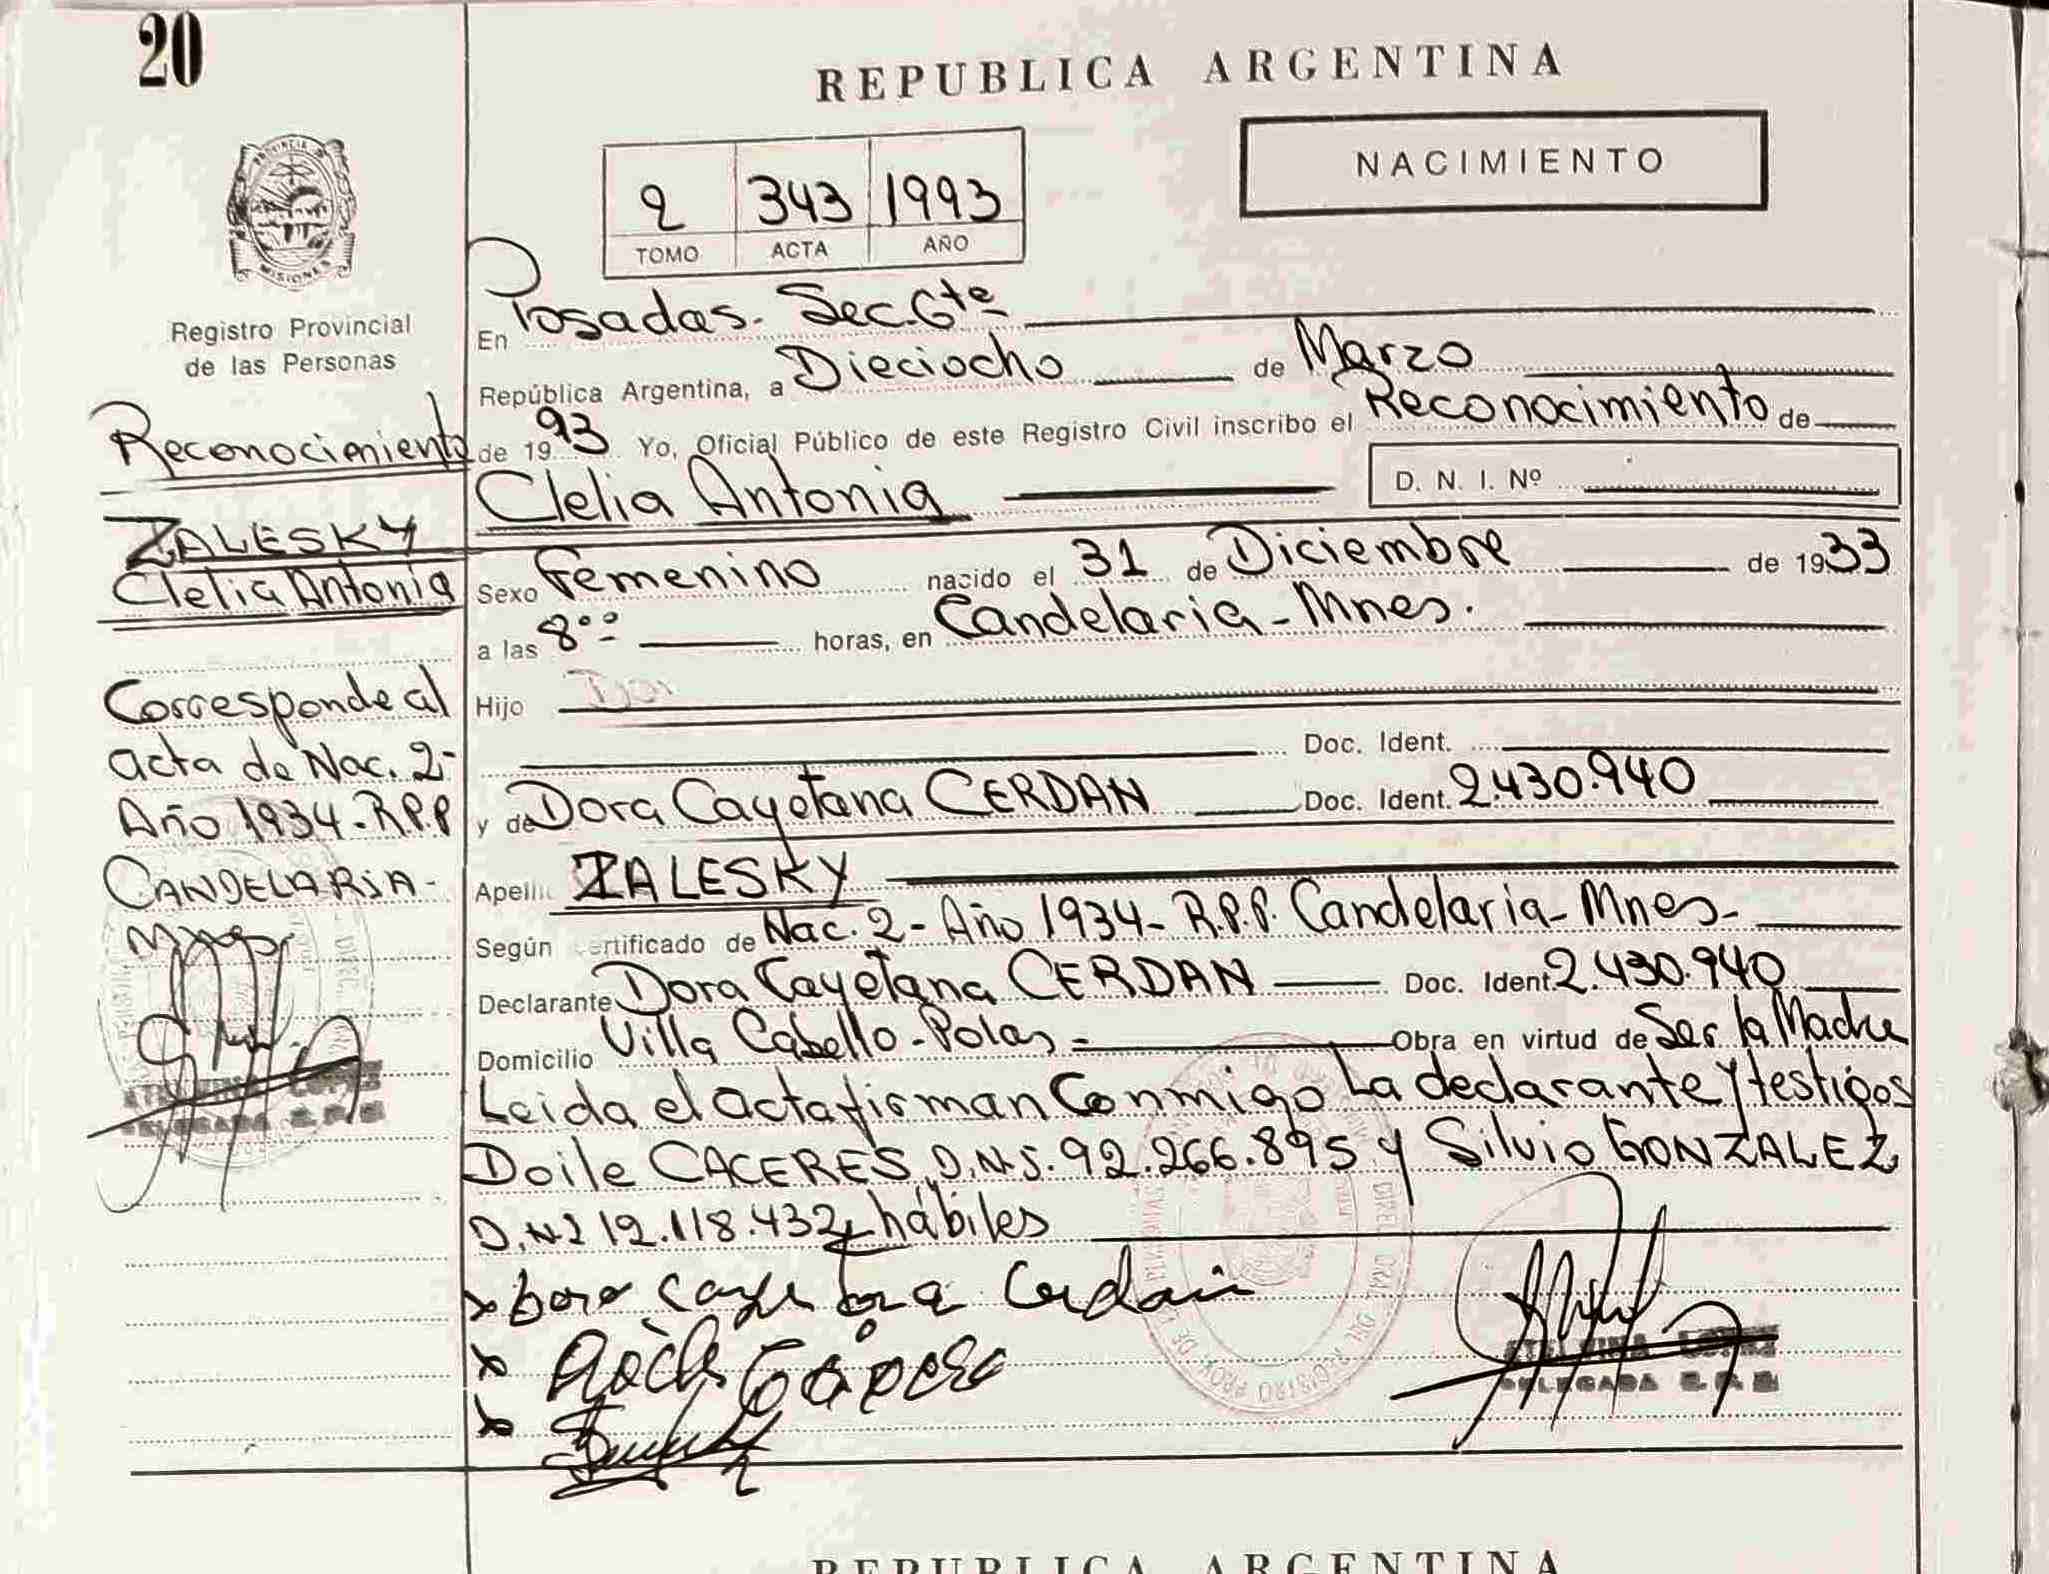 20
REPUBLICA ARGENTINA
NACIMIENTO
2 343 1993
TOMO ACTA AÑO
PROVINCIA DE
MISIONES
Registro Provincial
de las Personas
Reconocimiento
ZALESKY
Clelia Antonia
Corresponde al
acta de Nac. 2-
Año 1934-R.P.P
CANDELARIA-
Mnes.
DELEGADA
En Posadas. Sec. 6ta
República Argentina, a Dieciocho de Marzo
de 1993. Yo, Oficial Público de este Registro Civil inscribo el Reconocimiento de
Clelia Antonia D. N. I. Nº
Sexo Femenino nacido el 31 de Diciembre de 1933
a las 8ºº horas, en Candelaria - Mnes.
Hijo
Doc. Ident.
y de Dora Cayetana CERDAN Doc. Ident. 2.430.940
Apelli ZALESKY
Según certificado de Nac. 2 - Año 1934 - R.P.P. Candelaria - Mnes -
Declarante Dora Cayetana CERDAN Doc. Ident 2.430.940
Domicilio Villa Cabello - Polas - Obra en virtud de Ser la Madre
Leida el acta firman Conmigo La declarante y testigos
Doile CACERES, D.N.I. 92.266.895 y Silvio GONZALEZ
D.N.I 12.118.432, hábiles
x Dora Cayetana Cerdan
x
x
LOPEZ
DELEGADA
REPUBLICA ARGENTINA